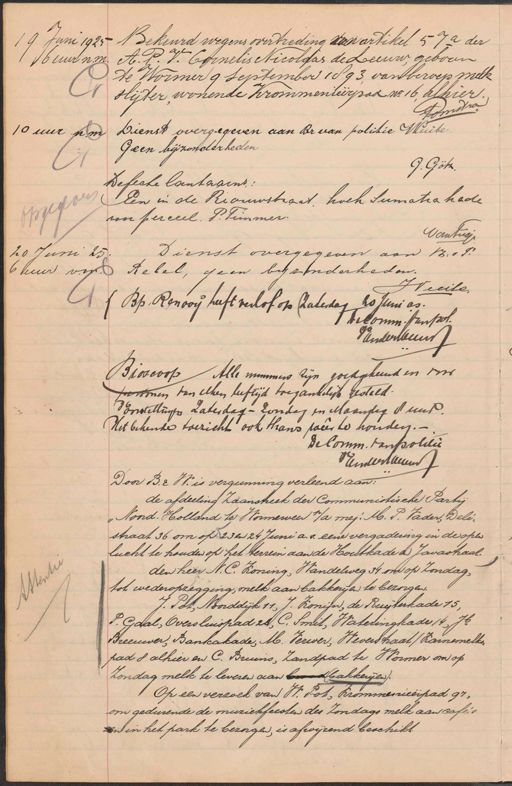 19 Juni 1925 Bekeurd wegens overtreding van artikel 57a der
6 uur n.m. A.P.V. Cornelis Nicolaas de Leeuw, geboren
de Wormer 9 september 1893, van beroep melk
slijter, wonende Krommenieërpad no 16, alhier.
10 uur n.m. Dienst overgegeven aan Br van politie Weits.
Geen bijzonderheden
G. Götz
Defecte lantaarns:
Opgegeven Een in de Riouwstraat hoek Sumatrakade
voor perceel P. Timmer.
20 Juni 25. Dienst overgegeven aan B.v.P.
6 uur v.m. Rebel, geen bijzonderheden.
Bp. Renooij heeft verlof op Zaterdag 20 Juni a.s.
De Comm. van pol.
Bioscoop Alle nummers zijn goedgekeurd en voor
personen van elken leeftijd toegankelijk gesteld.
Voorstelling Zaterdag - Zondag en Maandag 8 uur.
Het bekende toezicht ook thans weer te houden.
De Comm. van politie
Door B & W. is vergunning verleend aan:
de afdeeling Zaanstreek der Communistische Partij
Noord Holland te Wormerveer p/a mej. M. P. Vader, Deli
straat 36 om op 23 en 24 Juni a.s. eene vergadering in de open
lucht te houden op het terrein aan de Houtkade h Javastraat.
den heer N.C. Koning, Wandelweg 34 om op Zondag,
tot wederopzegging, melk aan bakkerijen te bezorgen.
Attentie J. Pot, Noorddijk 11, J. Konijn, de Ruyterkade 75,
P. Gaal, Oversluispad 28, C. Smit, Wateringkade 14, Jb
Breeuwer, Bankakade, M. Verver, Weverstraat, Karnemelks
pad 8 alhier en C. Bruins, Zandpad te Wormer om op
Zondag melk te leveren aan bakkerijen
Op een verzoek van W. Pot, Krommenieërpad 97,
om gedurende de muziekfeesten des Zondags melk aan café's
en in het park te bezorgen, is afwijzend beschikt